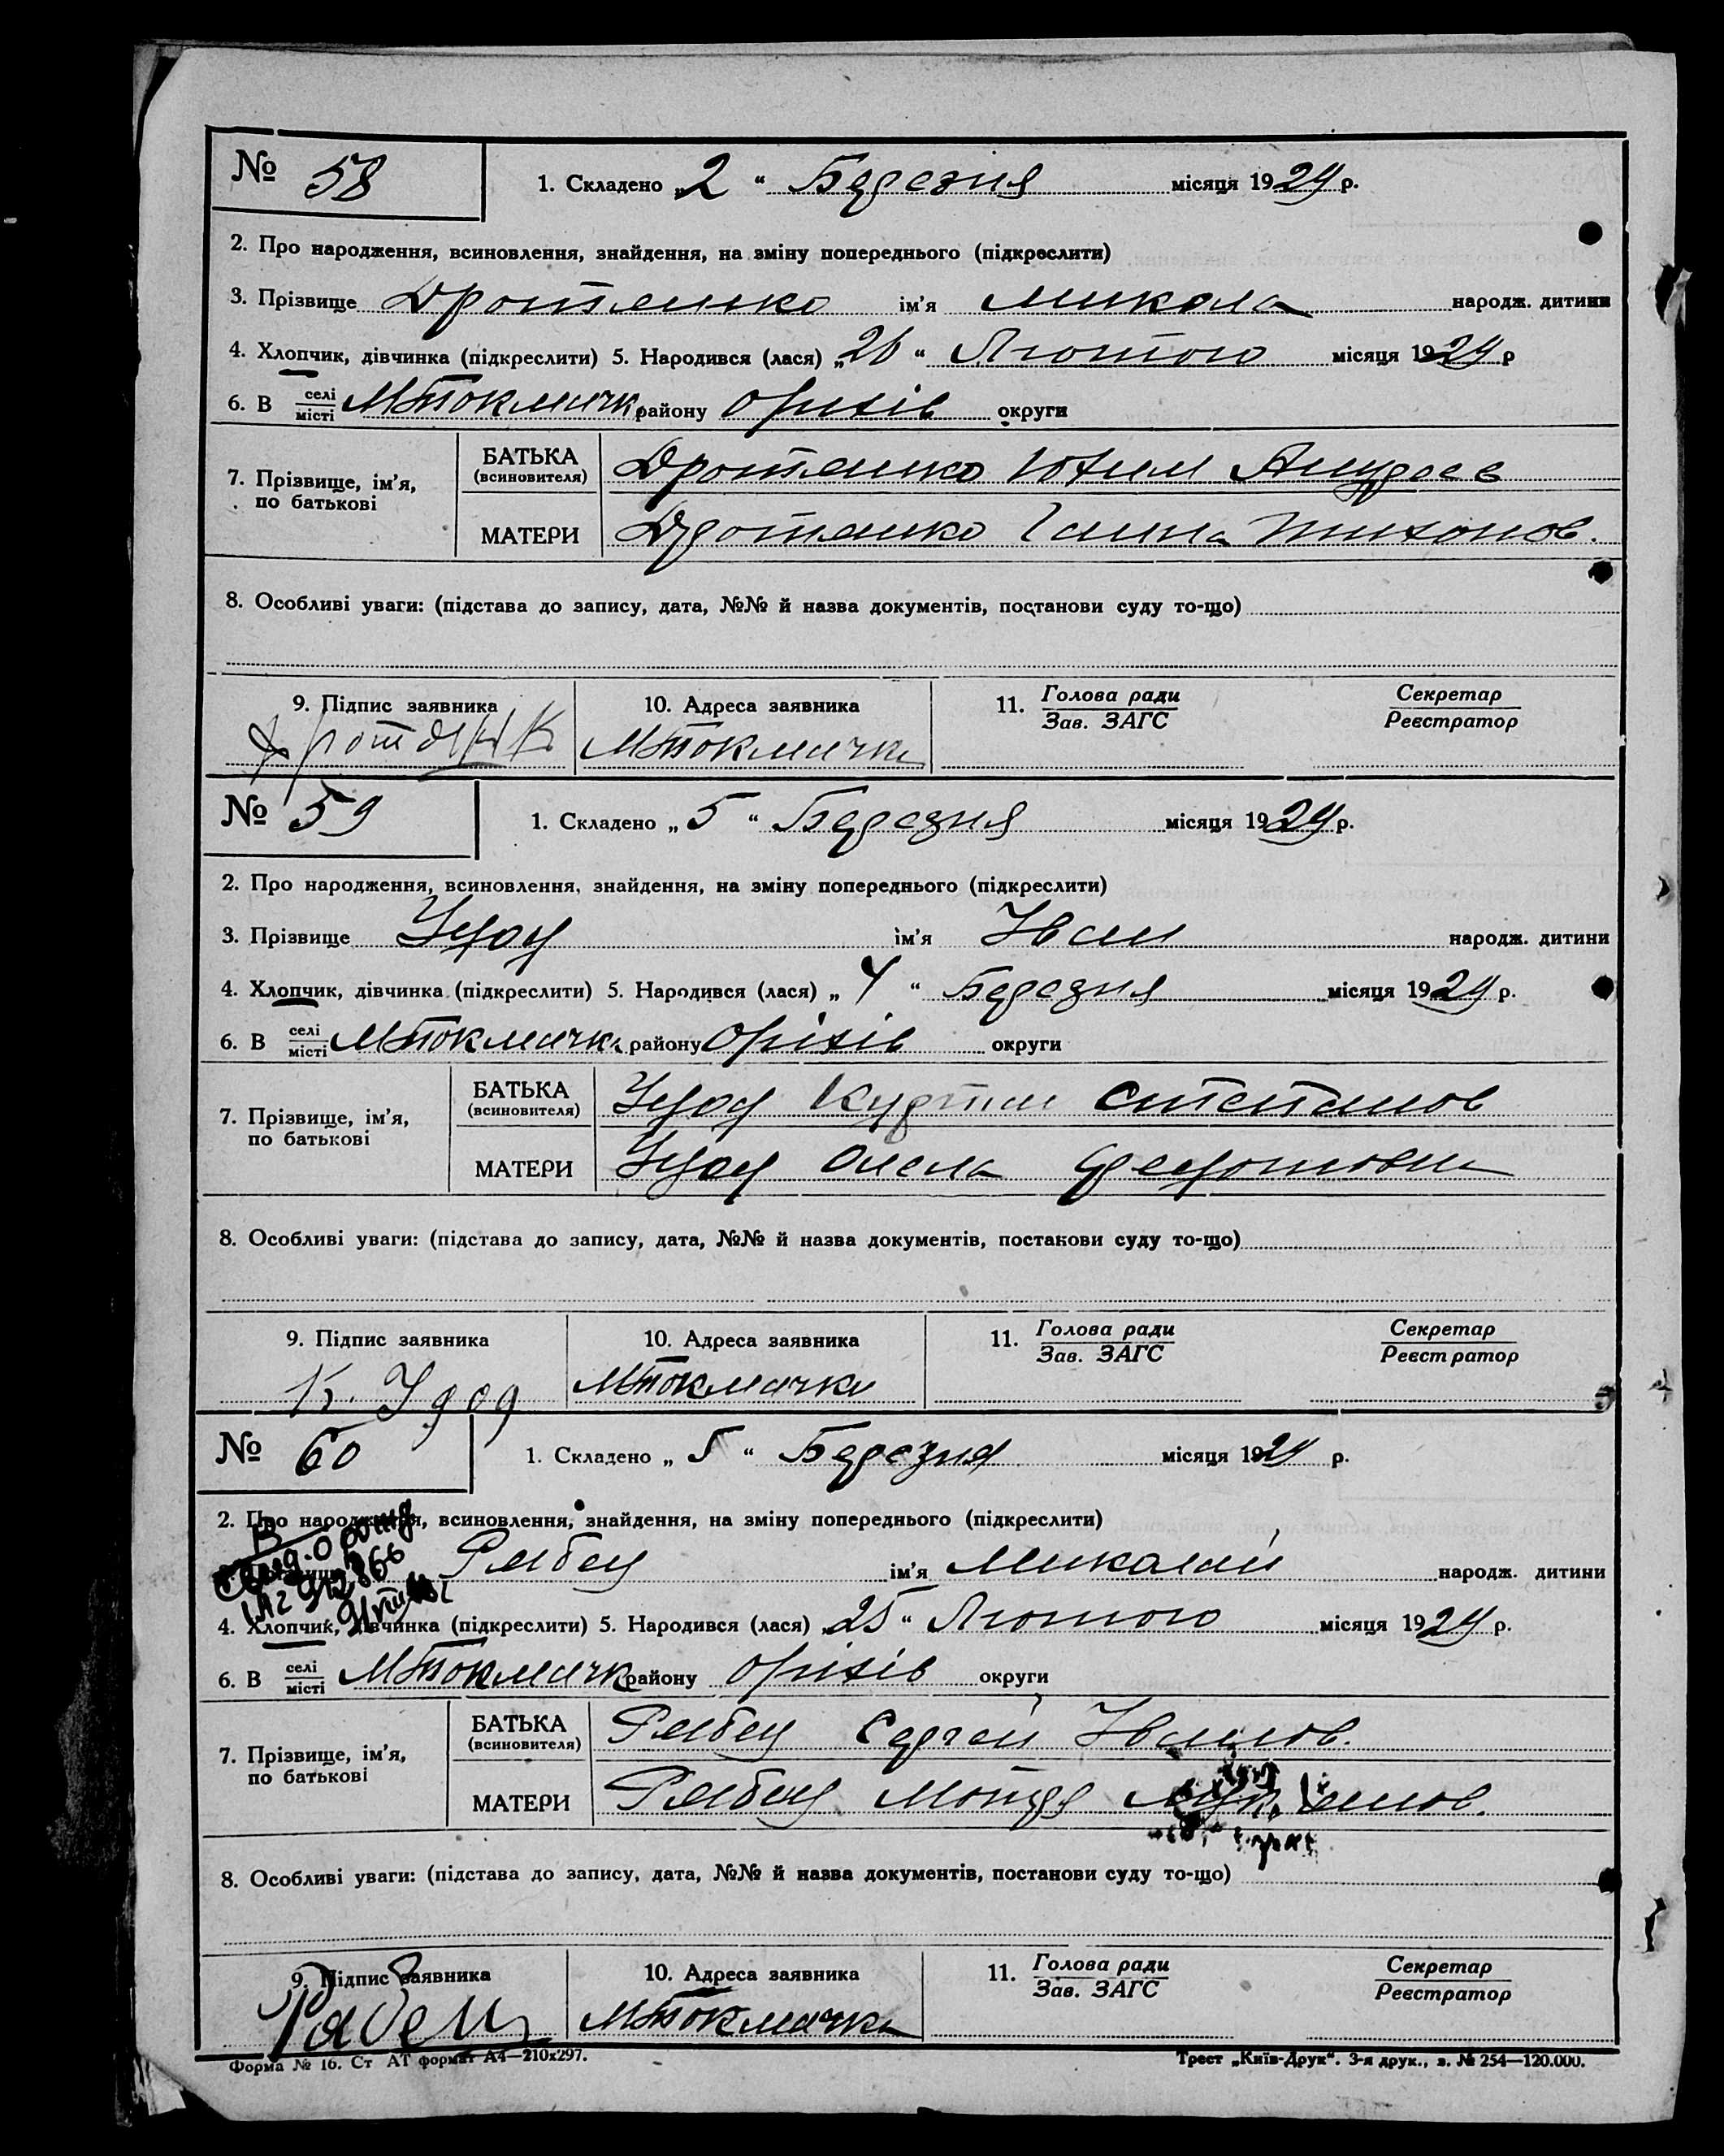 № 58 1. Складено „2“ Березня місяця 1924 р.
2. Про народження, всиновлення, знайдення, на зміну попереднього (підкреслити)
3. Прізвище Дротянко ім’я Микола народж. дитини
4. Хлопчик, дівчинка (підкреслити) 5. Народився (лася) „26“ Лютого місяця 1924 р
6. В селі місті МТокмачк району Оріхів округи
7. Прізвище, ім’я, по батькові
БАТЬКА (всиновителя) Дротянко Юхим
МАТЕРИ Дротянко Ганна Тихонов.
8. Особливі уваги: (підстава до запису, дата, №№ й назва документів, постанови суду то-що)
9. Підпис заявника 10. Адреса заявника 11. Голова ради Зав. ЗАГС Секретар Реєстратор
МТокмачка
№ 59 1. Складено „5“ Березня місяця 1924 р.
2. Про народження, всиновлення, знайдення, на зміну попереднього (підкреслити)
3. Прізвище Удод ім’я Іван народж. дитини
4. Хлопчик, дівчинка (підкреслити) 5. Народився (лася) „4“ Березня місяця 1924 р.
6. В селі місті МТокмачка району Оріхів округи
7. Прізвище, ім’я, по батькові
БАТЬКА (всиновителя) Удод Степанов
МАТЕРИ Удод Олена Федотовна
8. Особливі уваги: (підстава до запису, дата, №№ й назва документів, постанови суду то-що)
9. Підпис заявника 10. Адреса заявника 11. Голова ради Зав. ЗАГС Секретар Реєстратор
К. Удод МТокмачка
№ 60 1. Складено „5“ Березня місяця 1924 р.
2. Про народження, всиновлення, знайдення, на зміну попереднього (підкреслити)
Рябец ім’я Миколай народж. дитини
4. Хлопчик, дівчинка (підкреслити) 5. Народився (лася) 25“ Лютого місяця 1924 р.
6. В селі місті МТокмачк району Оріхів округи
7. Прізвище, ім’я, по батькові
БАТЬКА (всиновителя) Рябец Сергей Иванов.
МАТЕРИ Рябец Мотря
8. Особливі уваги: (підстава до запису, дата, №№ й назва документів, постанови суду то-що)
9. Підпис заявника 10. Адреса заявника 11. Голова ради Зав. ЗАГС Секретар Реєстратор
Рабец МТокмачка
Форма № 16. Ст АТ формат А4—210х297. Трест „Київ-Друк“. 3-я друк., з. № 254—120.000.